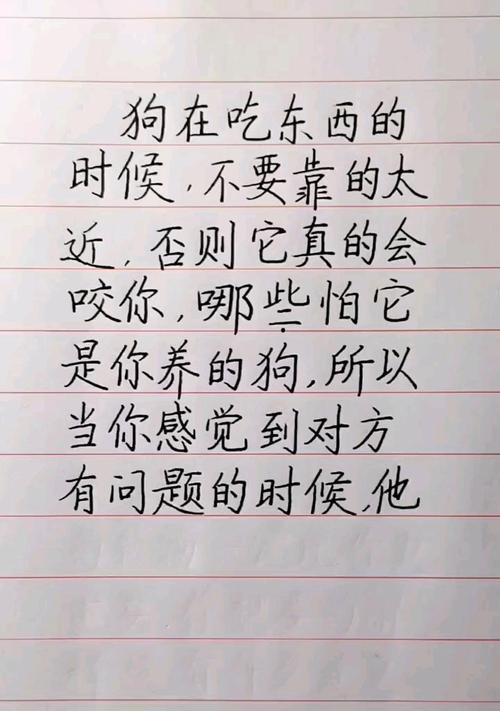 狗在吃东西的
时候,不要靠的太
近,否则它真的会
咬你,哪些怕它
是你养的狗,所以
当你感觉到对方
有问题的时候,他